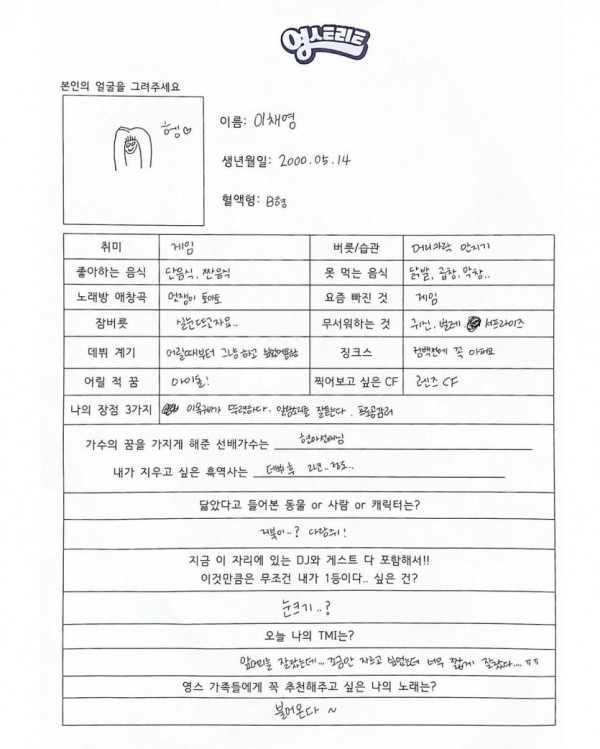 영스트리트
본인의 얼굴을 그려주세요
헹♡
이름: 이채영
생년월일: 2000.05.14
혈액형: B형
취미 게임 버릇/습관 머리카락 만지기
좋아하는 음식 단음식, 짠음식 못 먹는 음식 닭발, 곱창, 막창..
노래방 애창곡 멋쟁이 토마토 요즘 빠진 것 게임
잠버릇 실눈뜨고자요.. 무서워하는 것 귀신, 벌레, 서프라이즈
데뷔 계기 어릴때부터 그냥 하고 싶었어용 징크스 컴백전에 꼭 아파요
어릴 적 꿈 아이돌! 찍어보고 싶은 CF 렌즈 CF
나의 장점 3가지 이목구비가 뚜렷하다. 말랑뽀리를 잘한다. 프로공감러
가수의 꿈을 가지게 해준 선배가수는 현아선배님
내가 지우고 싶은 흑역사는 데뷔 후 2년..정도..
닮았다고 들어본 동물 or 사람 or 캐릭터는?
거북이..? 다람쥐!
지금 이 자리에 있는 DJ와 게스트 다 포함해서!!
이것만큼은 무조건 내가 1등이다.. 싶은 건?
눈크기..?
오늘 나의 TMI는?
앞머리를 잘랐는데... 조금만 자르고 싶었는데 너무 짧게 잘랐다.... ㅠㅠ
영스 가족들에게 꼭 추천해주고 싶은 나의 노래는?
불어온다 ~